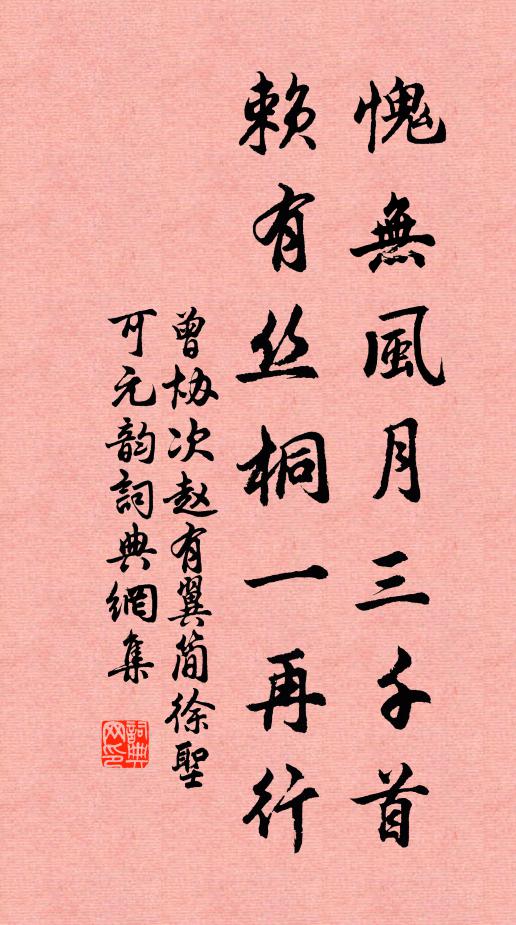 愧無風月三千首
賴有丝桐一再行
曾协次赵有翼简徐聖
可元韵詞典網集
詞典
网印